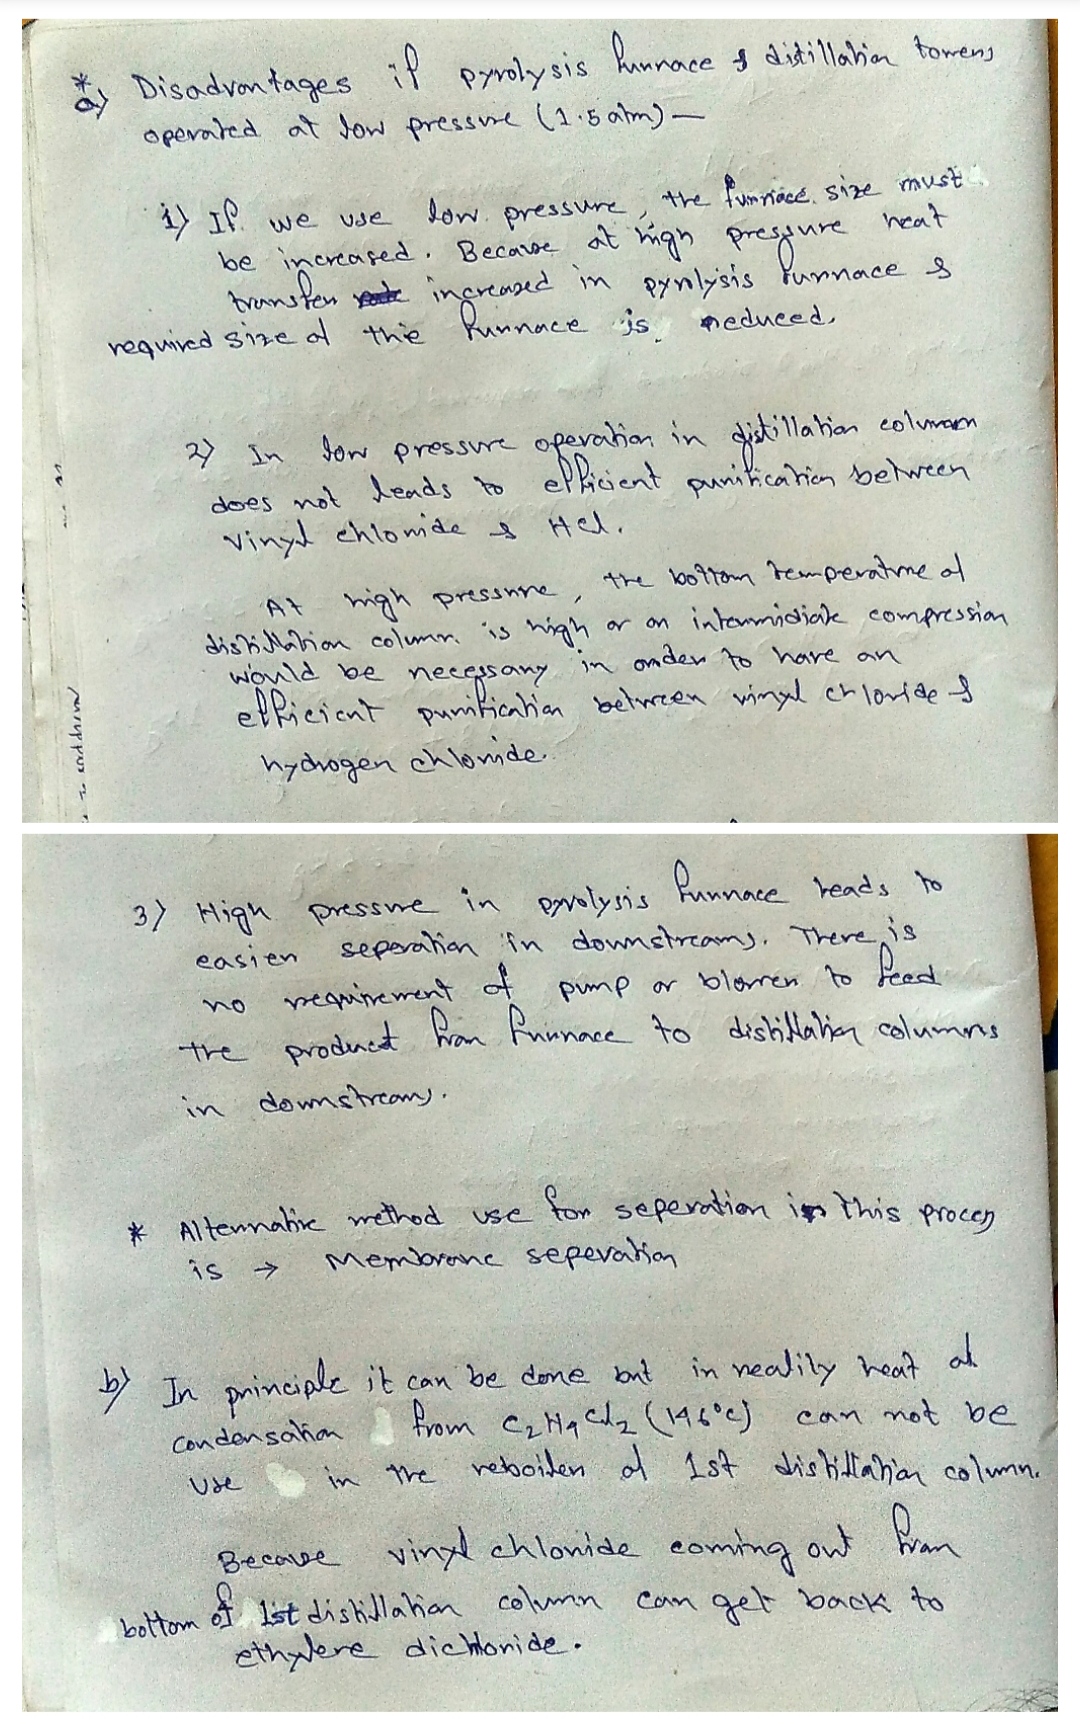 * a) Disadvantages if pyrolysis furnace & distillation towers
operated at low pressure (1.5 atm) —
1) If we use low pressure, the furnace size must
be increased. Because at high pressure heat
transfer increased in pyrolysis furnace &
required size of the furnace is reduced.
2) In low pressure operation in distillation column
does not leads to efficient purification between
vinyl chloride & Hcl.
At high pressure, the bottom temperature of
distillation column is high or an intermidiate compression
would be necessary in order to have an
efficient purification between vinyl chloride &
hydrogen chloride.
3) High pressure in pyrolysis furnace leads to
easier seperation in downstreams. There is
no requirement of pump or blower to feed
the product from furnace to distillation columns
in downstreams.
* Alternative method use for seperation in this process
is → Membrane seperation
b) In principle it can be done but in reality heat of
condensation from C2H4Cl2 (146°C) can not be
use in the reboiler of 1st distillation column.
Because vinyl chloride coming out from
bottom of 1st distillation column can get back to
ethylene dichloride.